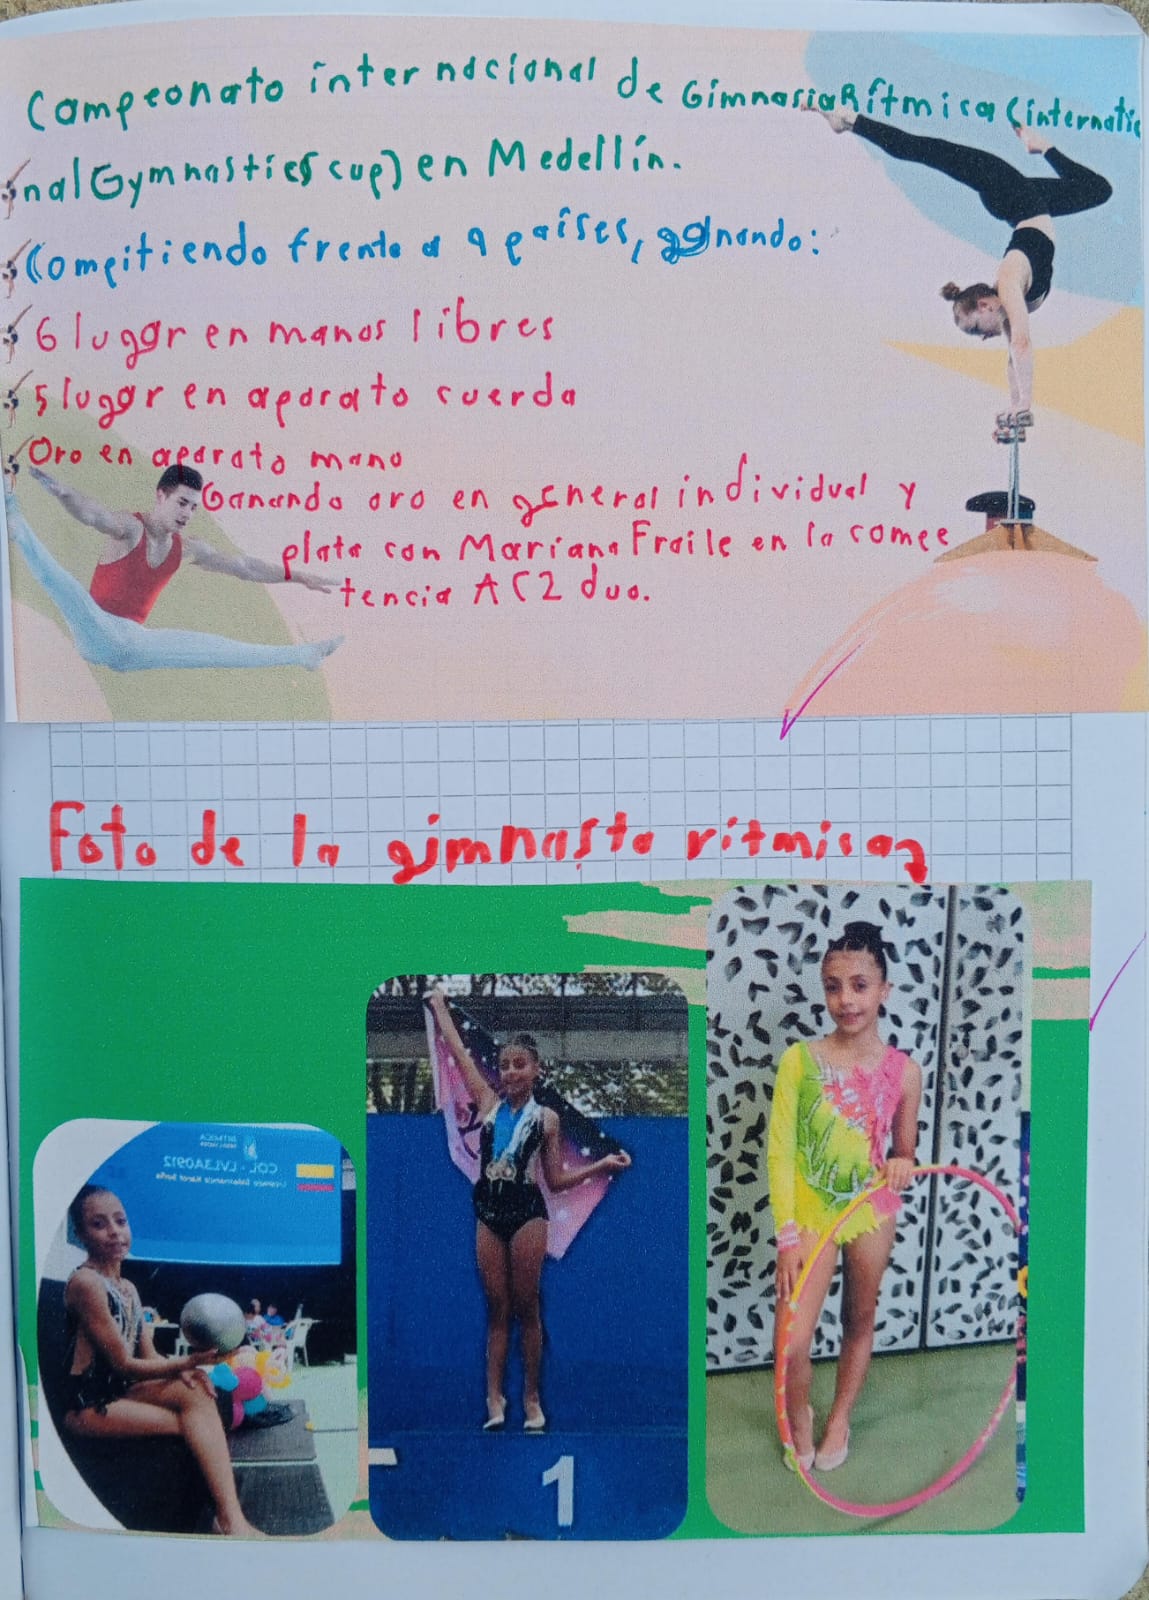 Campeonato internacional de Gimnasia Rítmica (internatio
nal Gymnastics cup) en Medellín.
Compitiendo frente a 9 países, ganando:
6 lugar en manos libres
5 lugar en aparato cuerda
Oro en aparato mano
Ganando oro en general individual y
plata con Mariana Fraile en la compe
tencia AC2 duo.
Foto de la gimnasta rítmica
COL - LVL3A0912
1